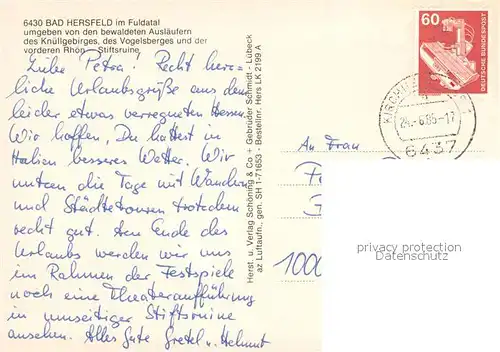 6430 BAD HERSFELD im Fuldatal
umgeben von den bewaldeten Ausläufern
des Knüllgebirges, des Vogelsberges und der
vorderen Rhön – Stiftsruine
Liebe Petra! Recht herz=
liche Urlaubsgrüße aus dem
leider etwas verregneten Hessen.
Wir hoffen, Du hattest in
Italien besseres Wetter. Wir
nutzen die Tage mit Wandern
und Städtetouren trotzdem
recht gut. Am Ende des
Urlaubs werden wir uns
im Rahmen der Festspiele
noch eine Theateraufführung
in umseitiger Stiftsruine
ansehen. Alles Gute Gretel u. Helmut
Herst. u. Verlag Schöning & Co + Gebrüder Schmidt - Lübeck
az Luftaufn., gen. SH 1-71653 - Bestellnr. Hers LK 2199 A
60
DEUTSCHE BUNDESPOST
6437
An Frau
1000
privacy protection
Datenschutz